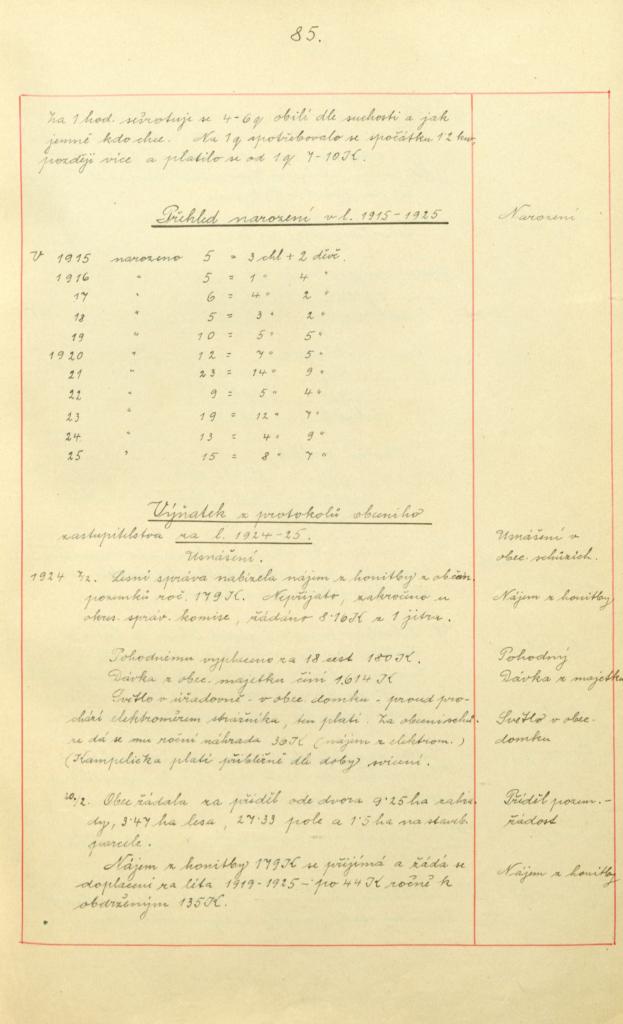 85.
Za 1 hod. sešrotuje se 4-6 q obilí dle suchosti a jak
jemně kdo chce. Na 1 q spotřebovalo se zpočátku 12 kw,
později více a platilo se od 1 q 7-10 K.
Přehled narození v l. 1915-1925
Narození
V 1915 narozeno 5 = 3 chl + 2 děvč.
1916 " 5 = 1 " 4 "
17 " 6 = 4 " 2 "
18 " 5 = 3 " 2 "
19 " 10 = 5 " 5 "
1920 " 12 = 7 " 5 "
21 " 23 = 14 " 9 "
22 " 9 = 5 " 4 "
23 " 19 = 12 " 7 "
24 " 13 = 4 " 9 "
25 " 15 = 8 " 7 "
Výňatek z protokolů obecního
zastupitelstva za l. 1924-25.
Usnášení v
Usnášení.
obec. schůzích.
1924 7/2. Lesní správa nabízela nájem z honitby z občan.
pozemků roč. 179 K. Nepřijato, zakročeno u
Nájem z honitby
okres. správ. komise, žádáno 8·16 K z 1 jitra.
Pohodnému vyplaceno za 18 cest 180 K.
Pohodný
Dávka z obec. majetku činí 1.614 K
Dávka z majetku
Světlo v úřadovně - v obec. domku - proud pro-
chází elektroměrem strážníka, ten platí. Za obecní schů-
Světlo v obec.
ze dá se mu roční náhrada 30 K (nájem z elektrom.)
domku
(Kampelička platí přibližně dle doby) svícení.
20/2. Obec žádala za příděl ode dvora 9·25 ha zahra-
Příděl pozem. -
dy, 3·47 ha lesa, 27·33 pole a 1·5 ha na staveb.
žádost
parcele.
Nájem z honitby 179 K se přijímá a žádá se
Nájem z honitby
doplacení za léta 1919-1925 - po 44 K ročně k
obdrženým 135 K.